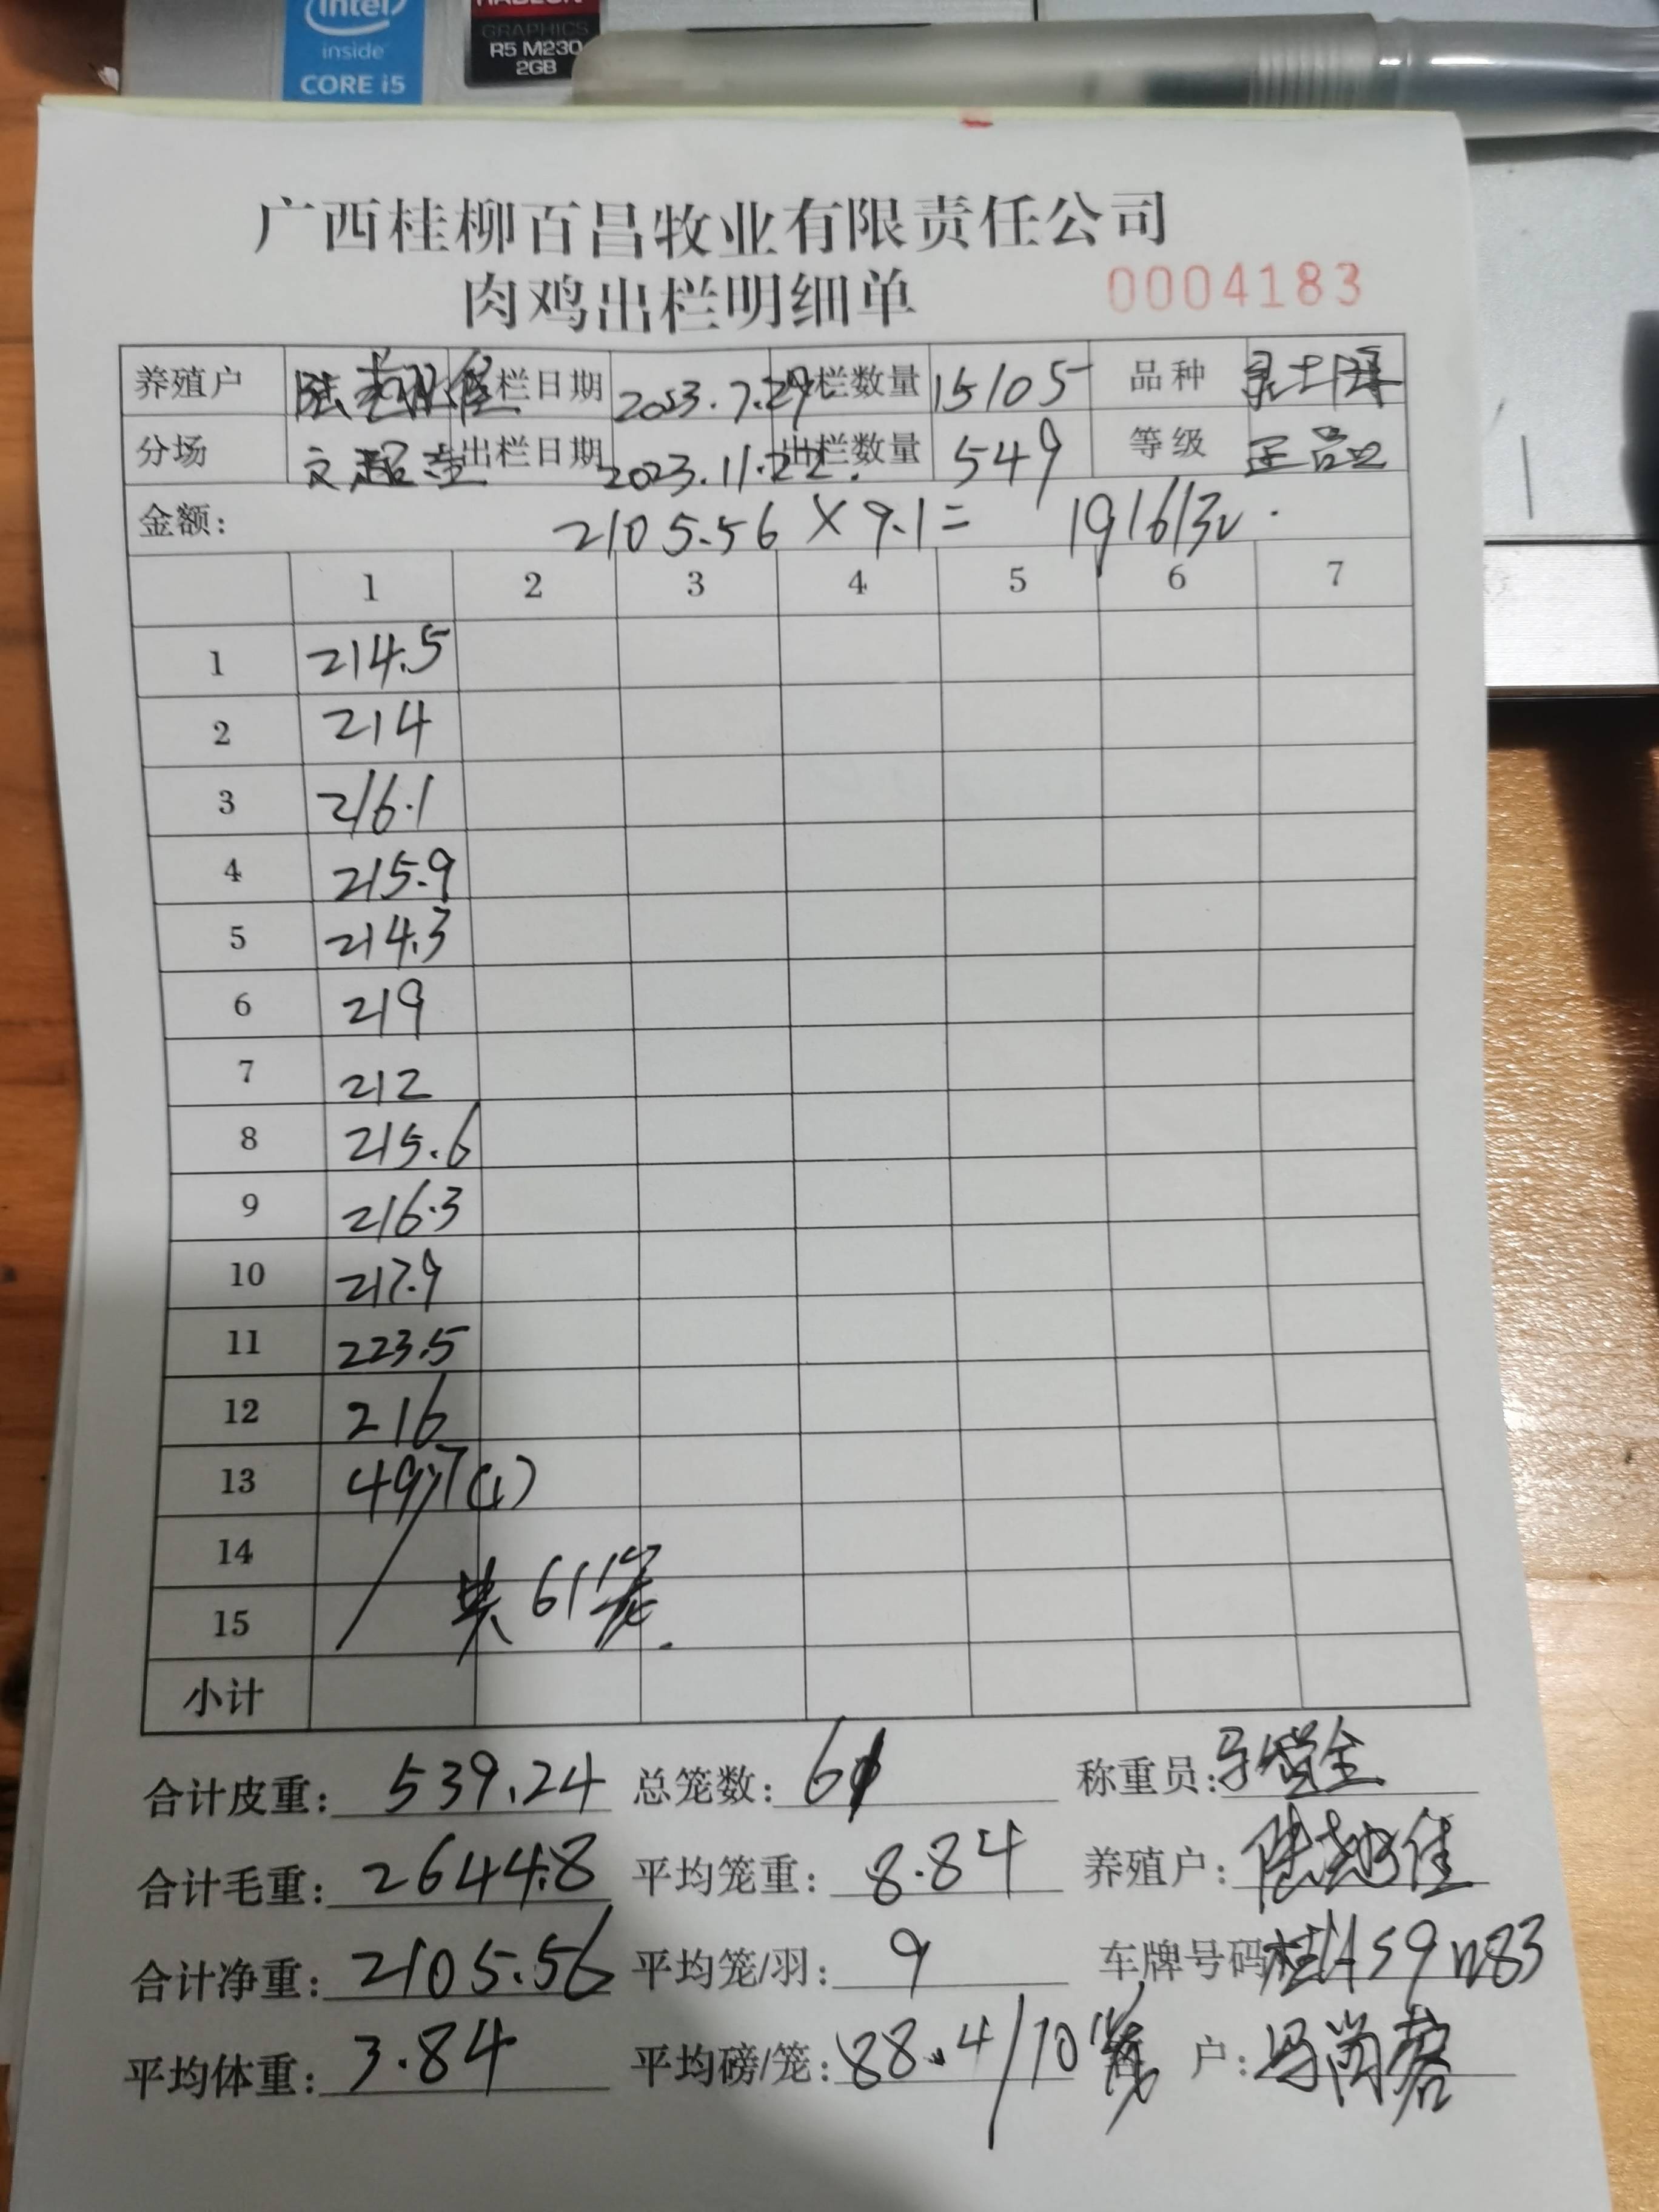 intel
inside
CORE i5
RADEON
GRAPHICS
R5 M230
2GB
广西桂柳百昌牧业有限责任公司
肉鸡出栏明细单 0004183
养殖户 栏日期 2023.7.29 栏数量 15105 品种
分场 文超志 出栏日期 2023.11.22. 出栏数量 549 等级 正品
金额: 2105.56 × 9.1 = 19161元.
1 2 3 4 5 6 7
1 214.5
2 214
3 216.1
4 215.9
5 214.3
6 219
7 212
8 215.6
9 216.3
10 217.9
11 223.5
12 216
13 49.7(1)
14
15 共61笼.
小计
合计皮重: 539.24 总笼数: 61 称重员:
合计毛重: 2644.8 平均笼重: 8.84 养殖户:
合计净重: 2105.56 平均笼/羽: 9 车牌号码 桂AS9N83
平均体重: 3.84 平均磅/笼: 88.4/10笼 户: 冯尚蓉